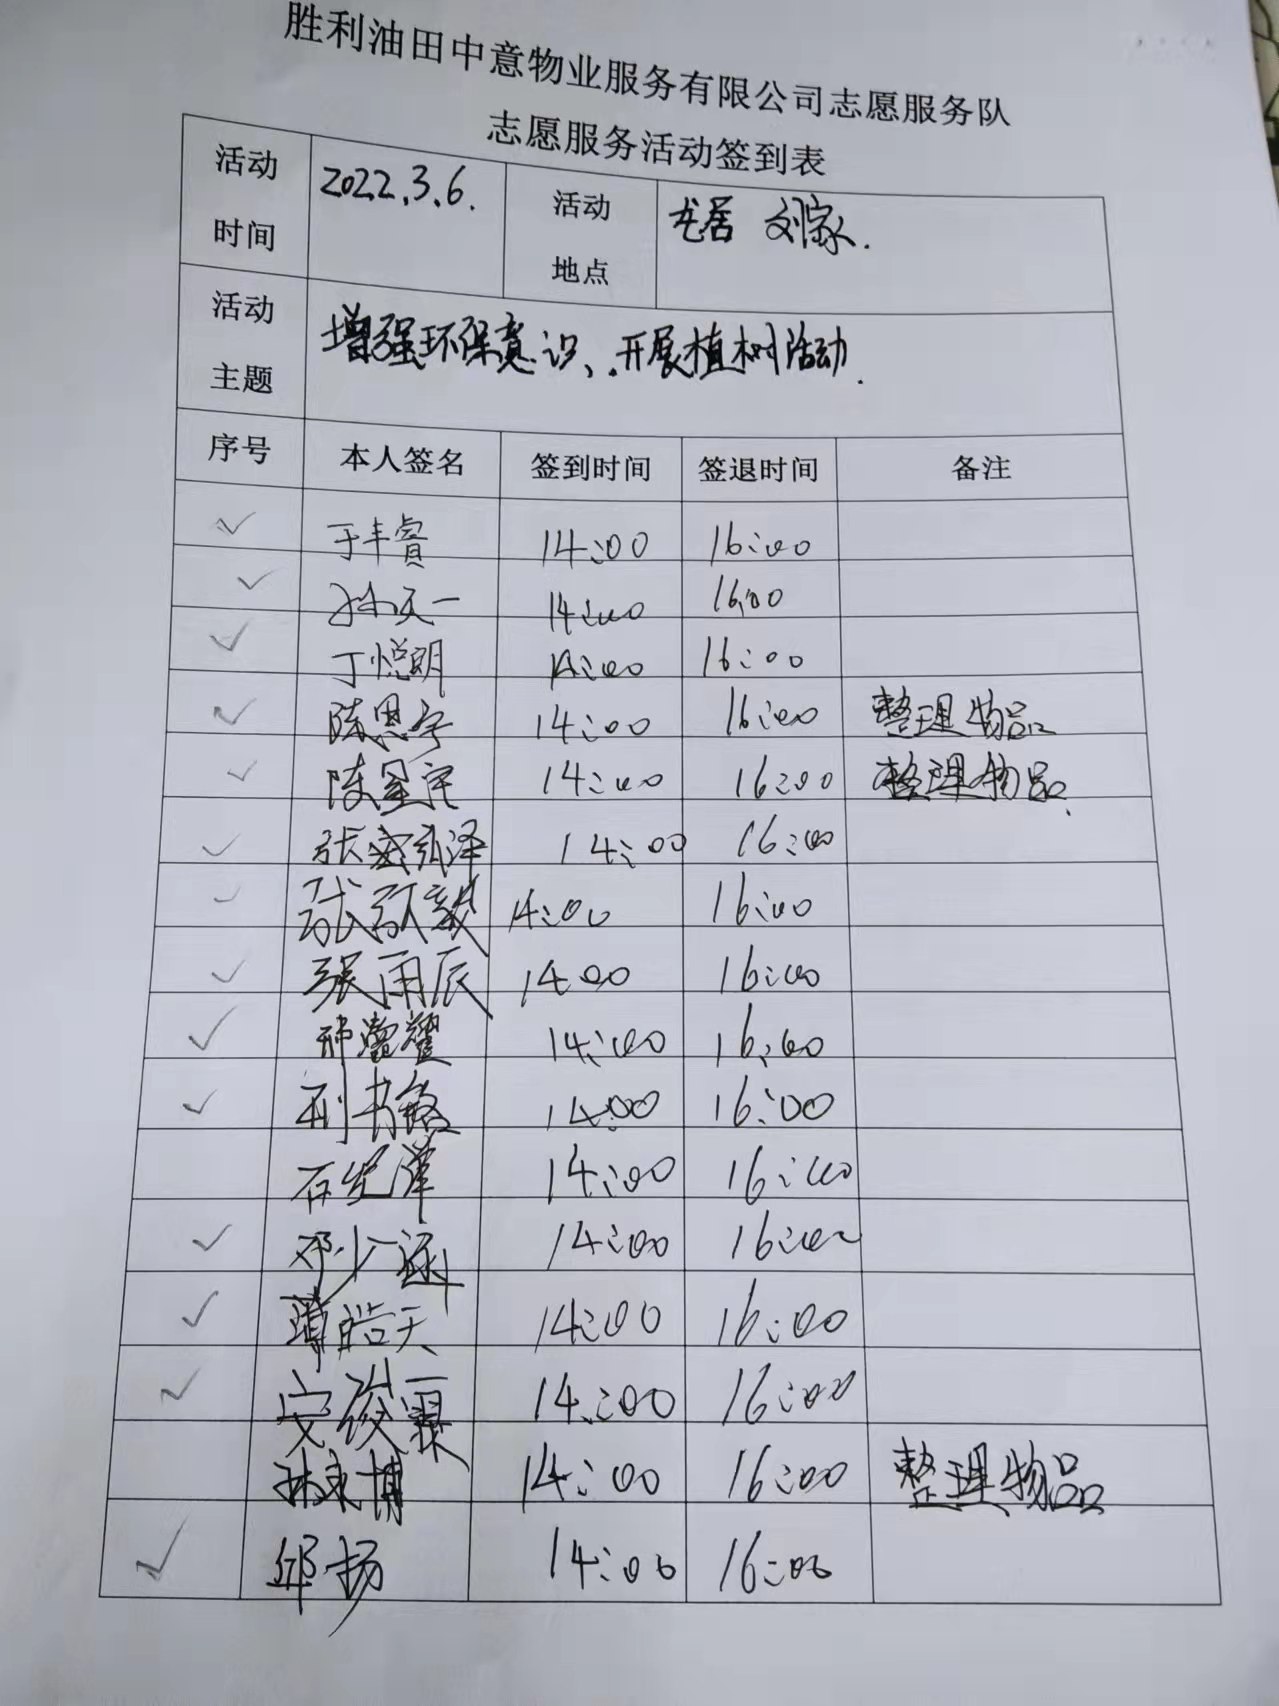 胜利油田中意物业服务有限公司志愿服务队
志愿服务活动签到表
活动时间 2022.3.6. 活动地点 龙居 刘家.
活动主题 增强环保意识、开展植树活动.
序号 本人签名 签到时间 签退时间 备注
✓ 于丰睿 14:00 16:00
✓ 孙天一 14:00 16:00
✓ 丁悦明 14:00 16:00
✓ 陈思宇 14:00 16:00 整理物品
✓ 陈星宇 14:00 16:00 整理物品.
✓ 张泽 14:00 16:00
✓ 毅 14:00 16:00
✓ 张雨辰 14:00 16:00
✓ 耀 14:00 16:00
✓ 书 14:00 16:00
石纪洋 14:00 16:00
✓ 邓少涵 14:00 16:00
✓ 皓天 14:00 16:00
✓ 安俊霖 14:00 16:00
孙永博 14:00 16:00 整理物品
✓ 邱扬 14:00 16:00